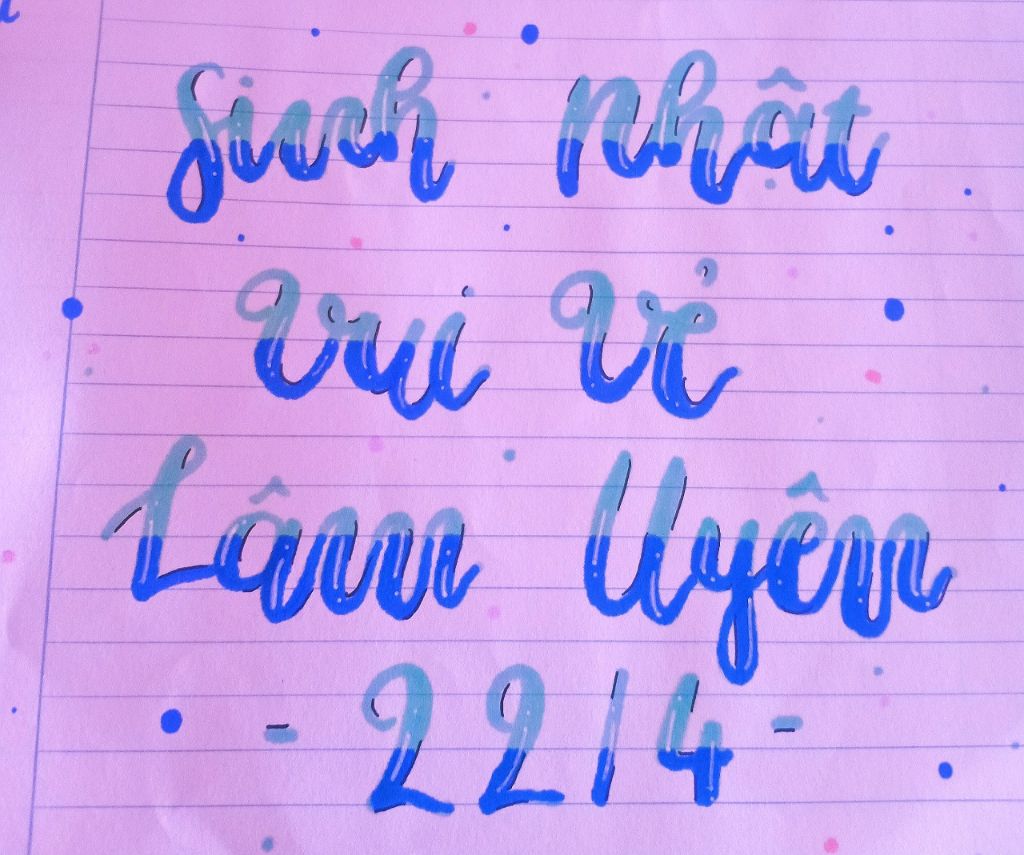 Sinh nhật
Vui vẻ
Lâm Uyên
- 22/4 -